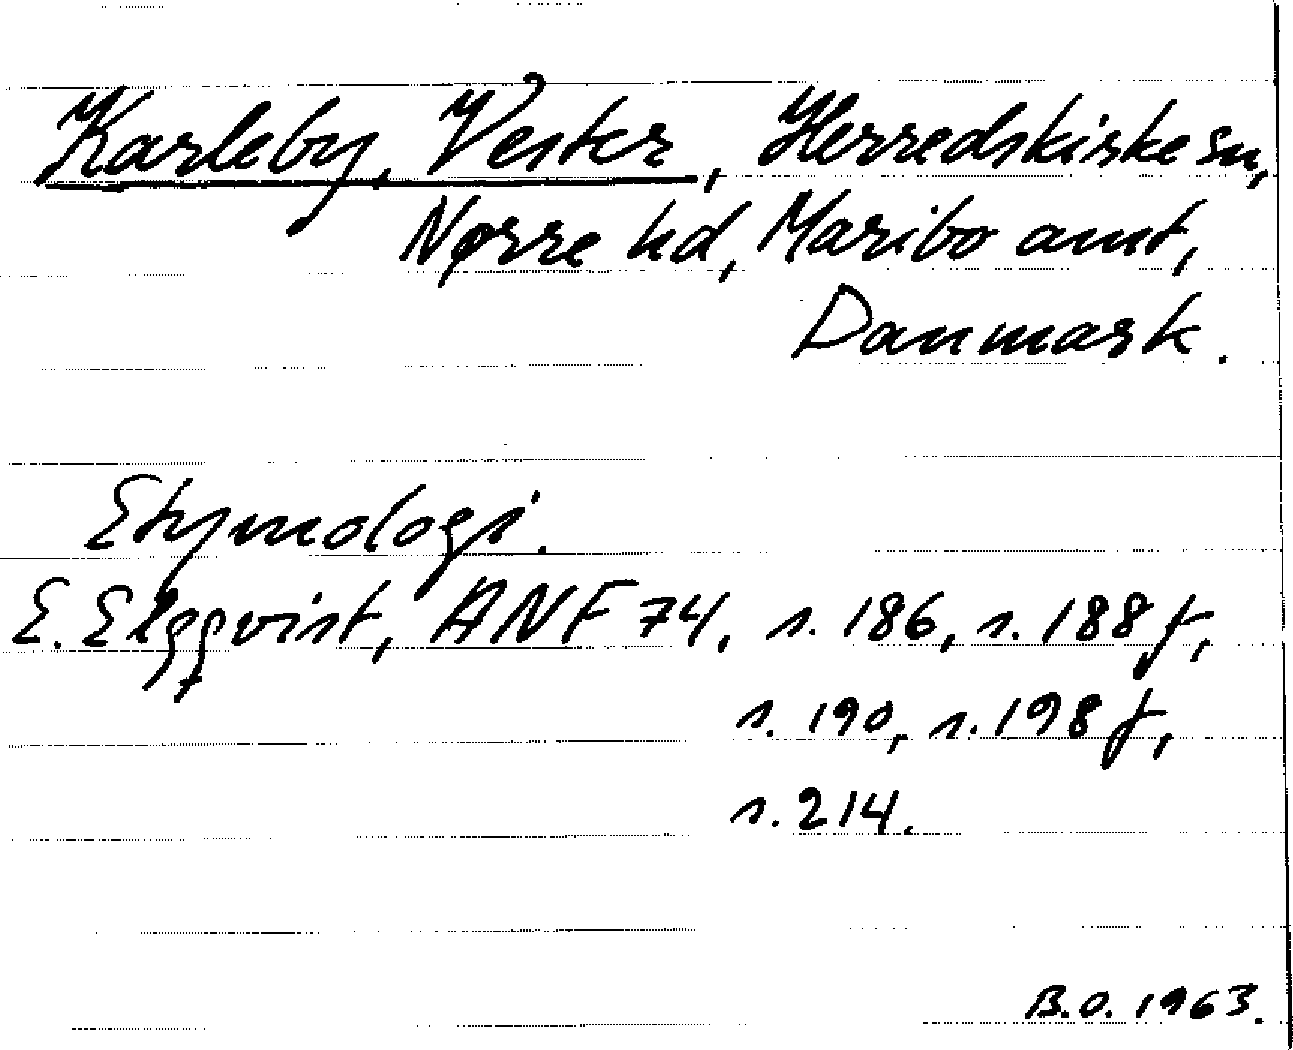 Karleby, Vester, Herredskirke sn,
Nørre hd, Maribo amt,
Danmark.
Etymologi.
E. Elgqvist, ANF 74, s. 186, s. 188 f,
s. 190, s. 198 f,
s. 214.
B.O. 1963.